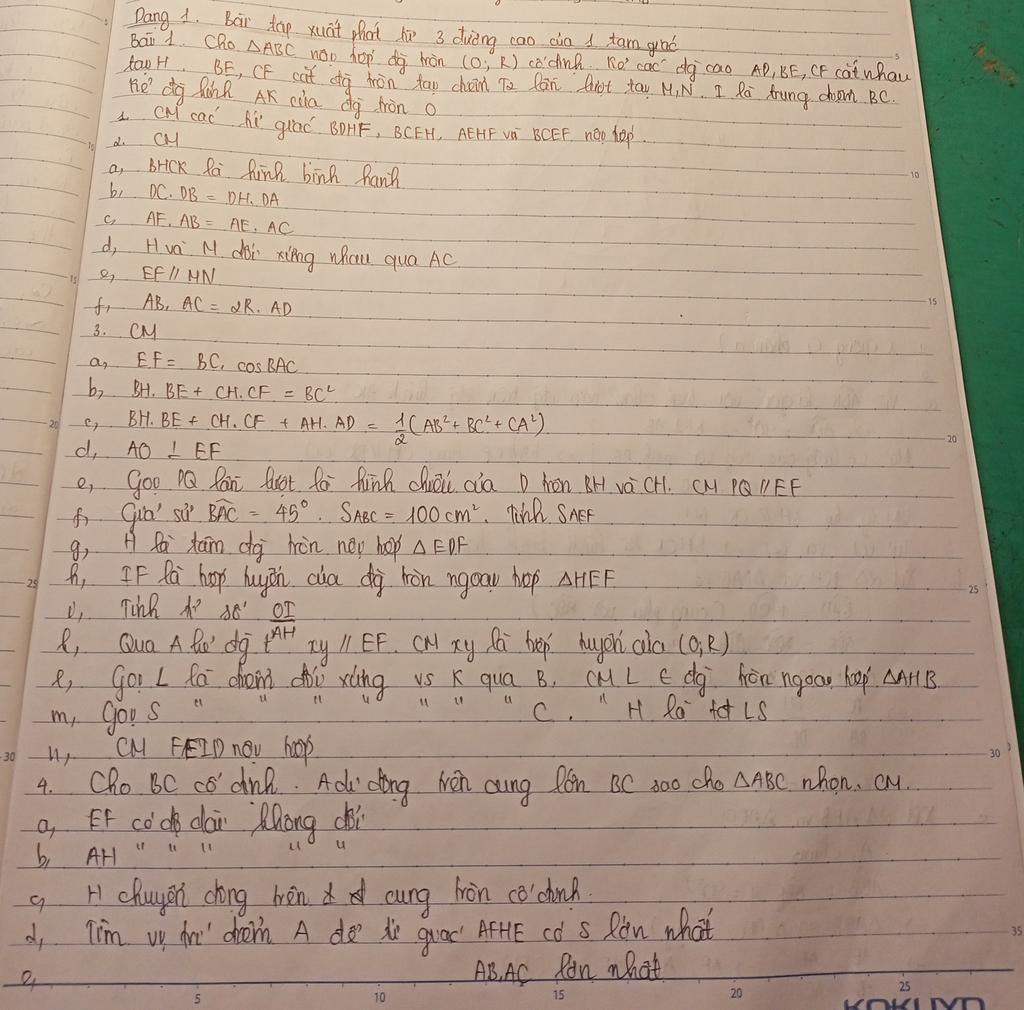 Dạng 1. Bài tập xuất phát từ 3 đường cao của 1 tam giác
Bài 1. Cho △ABC nội tiếp đg tròn (O; R) cố định. Kẻ các đg cao AD, BE, CF cắt nhau
tại H. BE, CF cắt đg tròn tại điểm T2 lần lượt tại M, N. I là trung điểm BC.
Kẻ đg kính AK của đg tròn O
1. CM các tứ giác BDHF, BCEH, AEHF và BCEF nội tiếp.
2. CM
a, BHCK là hình bình hành
b, DC. DB = DH. DA
c, AF. AB = AE. AC
d, H và M đối xứng nhau qua AC
e, EF // MN
f, AB. AC = 2R. AD
3. CM
a, EF = BC. cosBAC
b, BH. BE + CH. CF = BC²
c, BH. BE + CH. CF + AH. AD = 1/2 (AB² + BC² + CA²)
d, AO ⊥ EF
e, Gọi PQ lần lượt là hình chiếu của D trên BH và CH. CM PQ // EF
f, Giả sử BAC = 45°. SABC = 100cm². Tính SAEF
g, H là tâm đg tròn nội tiếp △EDF
h, IF là tiếp tuyến của đg tròn ngoại tiếp △HEF
i, Tính tỉ số OI/AH
k, Qua A kẻ đg t xy // EF. CM xy là tiếp tuyến của (O; R)
l, Gọi L là điểm đối xứng vs K qua B. CM L ∈ đg tròn ngoại tiếp △AHB.
m, Gọi S " " " " " " " C. " H là tđ LS
n, CM FEID nội tiếp
4. Cho BC cố định. A di động trên cung lớn BC sao cho △ABC nhọn. CM.
a, EF có độ dài không đổi
b, AH " " " " "
c, H chuyển động trên 1 cung tròn cố định.
d, Tìm vị trí điểm A để tứ giác AFHE có S lớn nhất
e, AB. AC lớn nhất
KOKUYO